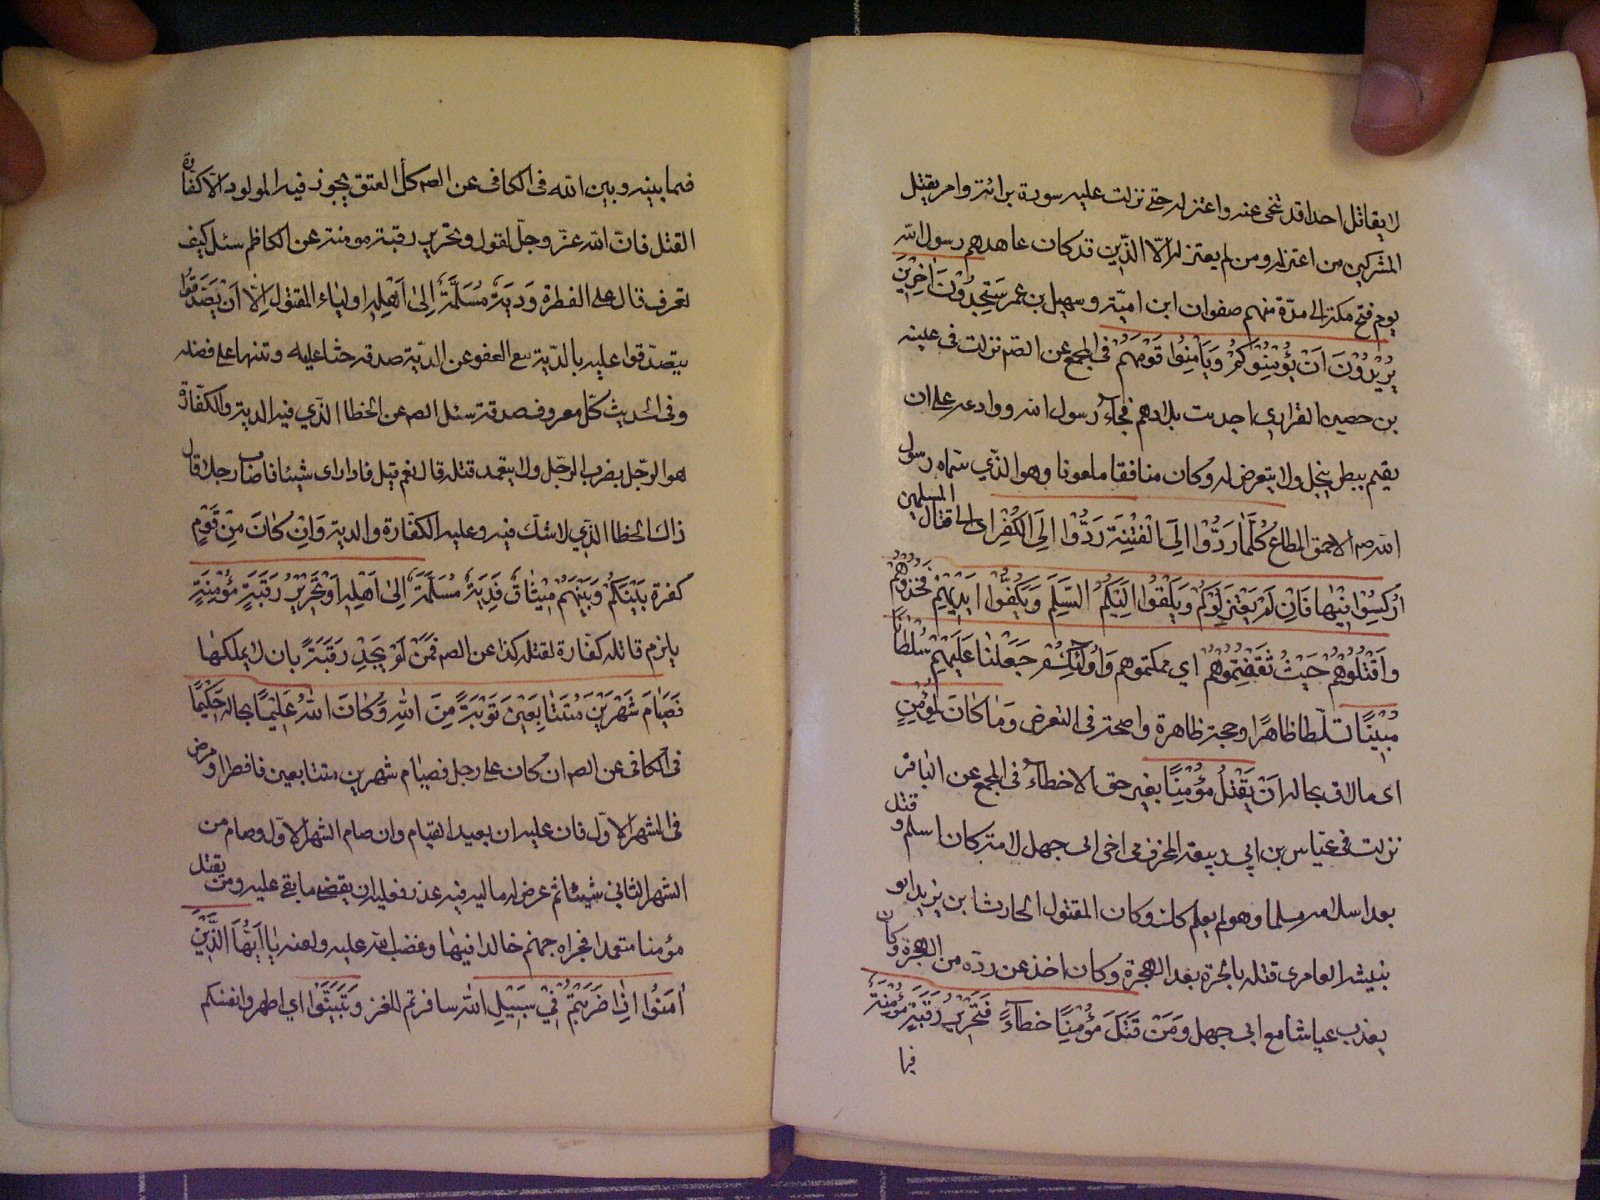 لا يقاتل احدا قد تنحى عنه واعتزله حتى نزلت عليه سورة برائة وامر بقتل
المشركين من اعتزله ومن لم يعتزله الا الذين قد كان عاهدهم رسول الله
يوم فتح مكة الى مدة منهم صفوان ابن امية وسهيل بن عمر سَتَجِدُونَ آخَرِينَ
يُرِيْدُوْنَ اَنْ يَأْمَنُوكُمْ وَيَأْمَنُوا قَوْمَهُمْ في المجمع عن الصم نزلت في عيينه
بن حصين الفزاري اجدبت بلادهم فجاء رسول الله ووادعه على ان
يقيم ببطن نخل ولا يتعرض له وكان منافقا ملعونا وهو الذي سماه رسول
الله صم الاحمق المطاع كُلَّمَا رُدُّوْا اِلَى الْفِتْنَةِ ردوا الى الكفر اى الى قتال المسلمين
اُرْكِسُوْا فِيْهَا فَاِنْ لَمْ يَعْتَزِلُوْكُمْ وَيُلْقُوْا اِلَيْكُمُ السَّلَمَ وَيَكُفُّوْا اَيْدِيَهُمْ فَخُذُوْهُمْ
وَاقْتُلُوْهُمْ حَيْثُ ثَقِفْتُمُوْهُمْ اي مكنتموهم وَاُولٰئِكُمْ جَعَلْنَا عَلَيْهِمْ سُلْطَانًا
مُبِيْنًا تسلطا ظاهرا وحجة ظاهرة واضحة في التعرض وَمَا كَانَ لِمُؤْمِنٍ
اى ما لاق بحاله اَنْ يَقْتُلَ مُؤْمِنًا بغير حق الا خطاء في المجمع عن الباقر
نزلت في عياش بن ابي ربيعة المخزومي اخى ابى جهل لامه كان اسلم وقتل
بعد اسلامه مسلما وهو لم يعلم وكان المقتول الحارث بن يزيد ابو
نبيشه العامرى قتله بالحرة بعد الهجرة وكان اخذ عن رده من الهجرة وكان
يعذب عياشا مع ابى جهل وَمَنْ قَتَلَ مُؤْمِنًا خَطَاءً فَتَحْرِيْرُ رَقَبَةٍ مُؤْمِنَةٍ
فيما
فيما بينه وبين الله في الكافي عن الصم كل العتق يجوز فيه المولود الا كفارة
القتل فان الله عز وجل يقول وتحرير رقبة مومنة عن الكاظم سئل كيف
تعرف قال على الفطرة وَدِيَةٌ مُسَلَّمَةٌ اِلٰى اَهْلِهِ اولياء المقتول اِلَّا اَنْ يَصَّدَّقُوْا
يتصدقوا عليه بالدية سمى العفو عن الدية صدقه حثا عليه وتنبيها على فضله
وفي الحديث كل معروف صدقة سئل الصم عن الخطا الذي فيه الدية والكفارة
هو الرجل يضرب الرجل ولا يتعمد قتله قال نعم قيل فاذا رمى شيئا فاصاب رجلا قال
ذلك الخطا الذي لا شك فيه وعليه الكفارة والدية وَاِنْ كَانَ مِنْ قَوْمٍ
كفرة بَيْنَكُمْ وَبَيْنَهُمْ مِيْثَاقٌ فَدِيَةٌ مُسَلَّمَةٌ اِلٰى اَهْلِهِ وَتَحْرِيْرُ رَقَبَةٍ مُؤْمِنَةٍ
يلزم قاتله كفارة لقتله كذا عن الصم فَمَنْ لَمْ يَجِدْ رَقَبَةً بان لا يملكها
فَصِيَامُ شَهْرَيْنِ مُتَتَابِعَيْنِ تَوْبَةً مِنَ اللهِ وَكَانَ اللهُ عَلِيْمًا بحاله حَكِيْمًا
في الكافي عن الصم ان كان على رجل صيام شهرين متتابعين فافطر او مرض
في الشهر الاول فان عليه ان يعيد الصيام وان صام الشهر الاول وصام من
الشهر الثاني شيئا ثم عرض له ماله فيه عذر فعليه ان يقضى ما بقى عليه ومن يقتل
مؤمنا متعمدا فجزاه جهنم خالدا فيها وغضب الله عليه ولعنه يَا اَيُّهَا الَّذِيْنَ
اٰمَنُوْا اِذَا ضَرَبْتُمْ فِيْ سَبِيْلِ الله سافرتم للغزو فَتَبَيَّنُوْا اى